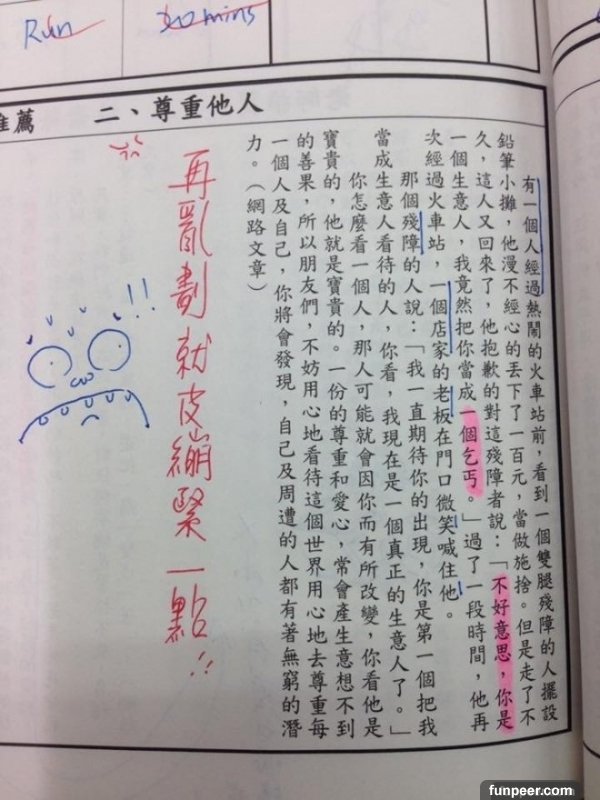 Run
20 mins
二、尊重他人
薦
有一個人經過熱鬧的火車站前，看到一個雙腿殘障的人擺設
鉛筆小攤，他漫不經心的丟下了一百元，當做施捨。但是走了不
久，這人又回來了，他抱歉的對這殘障者說：「不好意思，你是
一個生意人，我竟然把你當成一個乞丐。」過了一段時間，他再
次經過火車站，一個店家的老板在門口微笑喊住他。
那個殘障的人說：「我一直期待你的出現，你是第一個把我
當成生意人看待的人，你看，我現在是一個真正的生意人了。」
你怎麼看一個人，那人可能就會因你而有所改變，你看他是
寶貴的，他就是寶貴的。一份的尊重和愛心，常會產生意想不到
的善果，所以朋友們，不妨用心地看待這個世界用心地去尊重每
一個人及自己，你將會發現，自己及周遭的人都有著無窮的潛
力。（網路文章）
再亂劃就皮繃緊一點!!
!!
funpeer.com